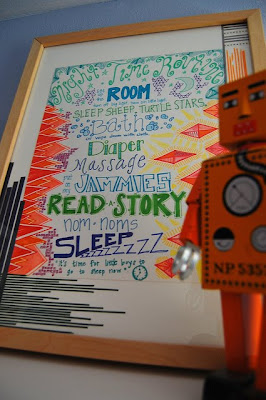 Night Time Routine
ROOM
SLEEP SHEEP, TURTLE STARS,
Bath
Diaper
Massage
JAMMIES
READ A STORY
nom-noms
SLEEPZZZZZZZ
"it's time for little boys to
go to sleep now"
NP 5357